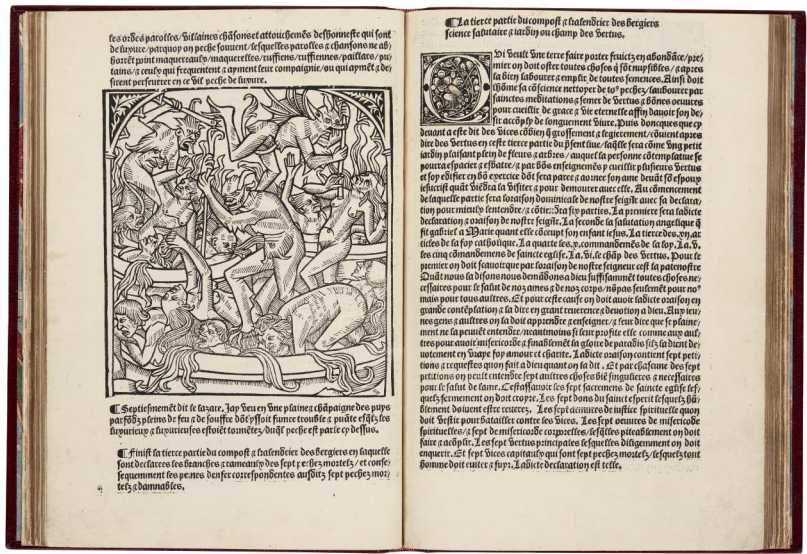 les ordes parolles / villaines chãsons et attouchemẽs deshonneste qui sont
de luxure / parquoy on peche souuent / lesquelles parolles ⁊ chansons ne ab/
horrẽt point maquereaulx / maquerelles / ruffiens / ruffiennes / paillars / pu/
tains / ⁊ ceulx qui frequentent ⁊ ayment leur compaignie / ou qui aymẽt ⁊ de/
sirent perseuerer en ce vil peche de luxure.
¶ Septiesmemẽt dit le lazare. Jay veu en vne plaine ⁊ chãpaigne des puys
parfõdz pleins de feu ⁊ de souffre dõt yssoit fumee trouble ⁊ puãte esq̃lz les
luxurieux ⁊ luxurieuses estoiẽt tormẽtez / duq̃l peche est parle cy dessus.
¶ Finist la tierce partie du compost ⁊ kalendrier des bergiers en laquelle
sont declarees les branches ⁊ rameaulx des sept pechez mortelz / et conse/
sequemment les peines denfer correspondentes ausditz sept pechez mor/
telz ⁊ damnables.
¶ La tierce partie du compost ⁊ kalendrier des bergiers
science salutaire ⁊ iardin ou champ des vertus.
Qvi veult vne terre faire porter fruictz en abondãce / pre/
mier on doit oster toutes choses q̃ sõt nuysibles / ⁊ apres
la bien labourer ⁊ emplir de toutes semences. Ainsi doit
lhõme sa cõscience nettoyer de to⁹ pechez / laubourer par
sainctes meditations ⁊ semer de vertus ⁊ bõnes oeuures
pour cueillir de grace ⁊ vie eternelle affin dauoir son de/
sir accõply de longuement viure. Puis doncques que cy
deuant a este dit des vices cõbien q̃ grossement ⁊ legierement / cõuient apres
dire des vertus en ceste tierce partie du p̃sent liure / laq̃lle sera cõme vng petit
iardin plaisant plein de fleurs ⁊ arbres / auquel la personne cõtemplatiue se
pourra espacier ⁊ esbatre / ⁊ par bõs enseignemẽs y cueillir plusieurs vertus
et soy edifier en bõ exercice dõt sera paree ⁊ aornee son ame deuãt sõ espoux
iesucrist quãt viẽdra la visiter ⁊ pour demourer auec elle. Au cõmencement
de laquelle partie sera loraison dominicale de nostre seigñr auec sa declara/
tion pour mieulx lentendre / ⁊ cõtiẽdra six parties. La premiere sera ladicte
declaration ⁊ oraison de nostre seigñr. La seconde la salutation angelique q̃
fit gabriel a Marie quant elle cõceupt son enfant iesus. La tierce des .xij. ar
ticles de la foy catholique. La quarte les .x. commandemẽs de la loy. La .v.
les cinq cõmandemens de saincte eglise. La .vi. le chãp des vertus. Pour le
premier on doit scauoir que par loraison de nostre seigneur cest la patenostre
Quãt nous la disons nous demãdons a dieu suffisammẽt toutes choses ne/
cessaires pour le salut de noz ames ⁊ de noz corps / nõ pas seulemẽt pour no⁹
mais pour tous aultres. Et pour ceste cause on doit auoir ladicte oraison en
grande cõtẽplation ⁊ la dire en grant reuerence ⁊ deuotion a dieu. Aux ieu/
nes gens ⁊ aultres on la doit apprendre ⁊ enseigner / ⁊ leur dire que se pleine/
ment ne la peuẽt entendre / neantmoins si leur profite elle comme aux aul/
tres pour auoir misericorde ⁊ finablemẽt la gloire de paradis silz la dient de/
uotement en vraye foy amour et charite. Ladicte oraison contient sept peti/
tions ⁊ requestes quon fait a dieu quant on la dit. Et par chascune des sept
petitions on peult entendre sept aultres choses biẽ singulieres ⁊ necessaires
pour le salut de lame. Cestassauoir les sept sacremens de saincte eglise les/
quelz fermement on doit croyre. Les sept dons du sainct esperit lesquelz hũ/
blement doiuent estre requerez. Les sept armures de iustice spirituelle quon
doit vestir pour batailler contre les vices. Les sept oeuures de misericorde
spirituelles / ⁊ sept de misericorde corporelles / lesq̃lles piteablement on doit
faire ⁊ acõplir. Les sept vertus principales lesquelles diligemment on doit
enquerir. Et sept vices capitaulx qui sont sept pechez mortelz / lesquelz tout
homme doit euiter ⁊ fuyr. Ladicte declaration est telle.